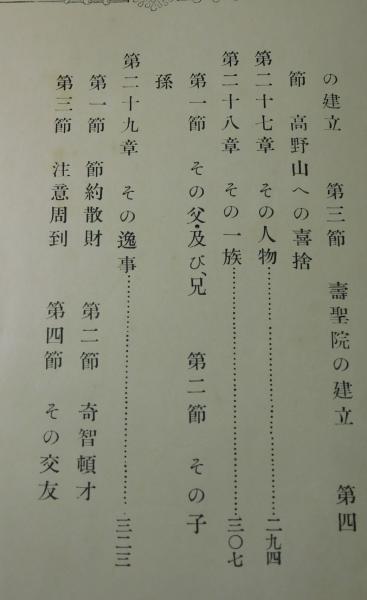 の建立　第三節　壽聖院の建立　第四
節　高野山への喜捨
第二十七章　その人物……………………二九四
第二十八章　その一族……………………三〇七
第一節　その父・及び、兄　第二節　その子
孫
第二十九章　その逸事……………………三二三
第一節　節約散財　第二節　奇智頓才
第三節　注意周到　第四節　その交友